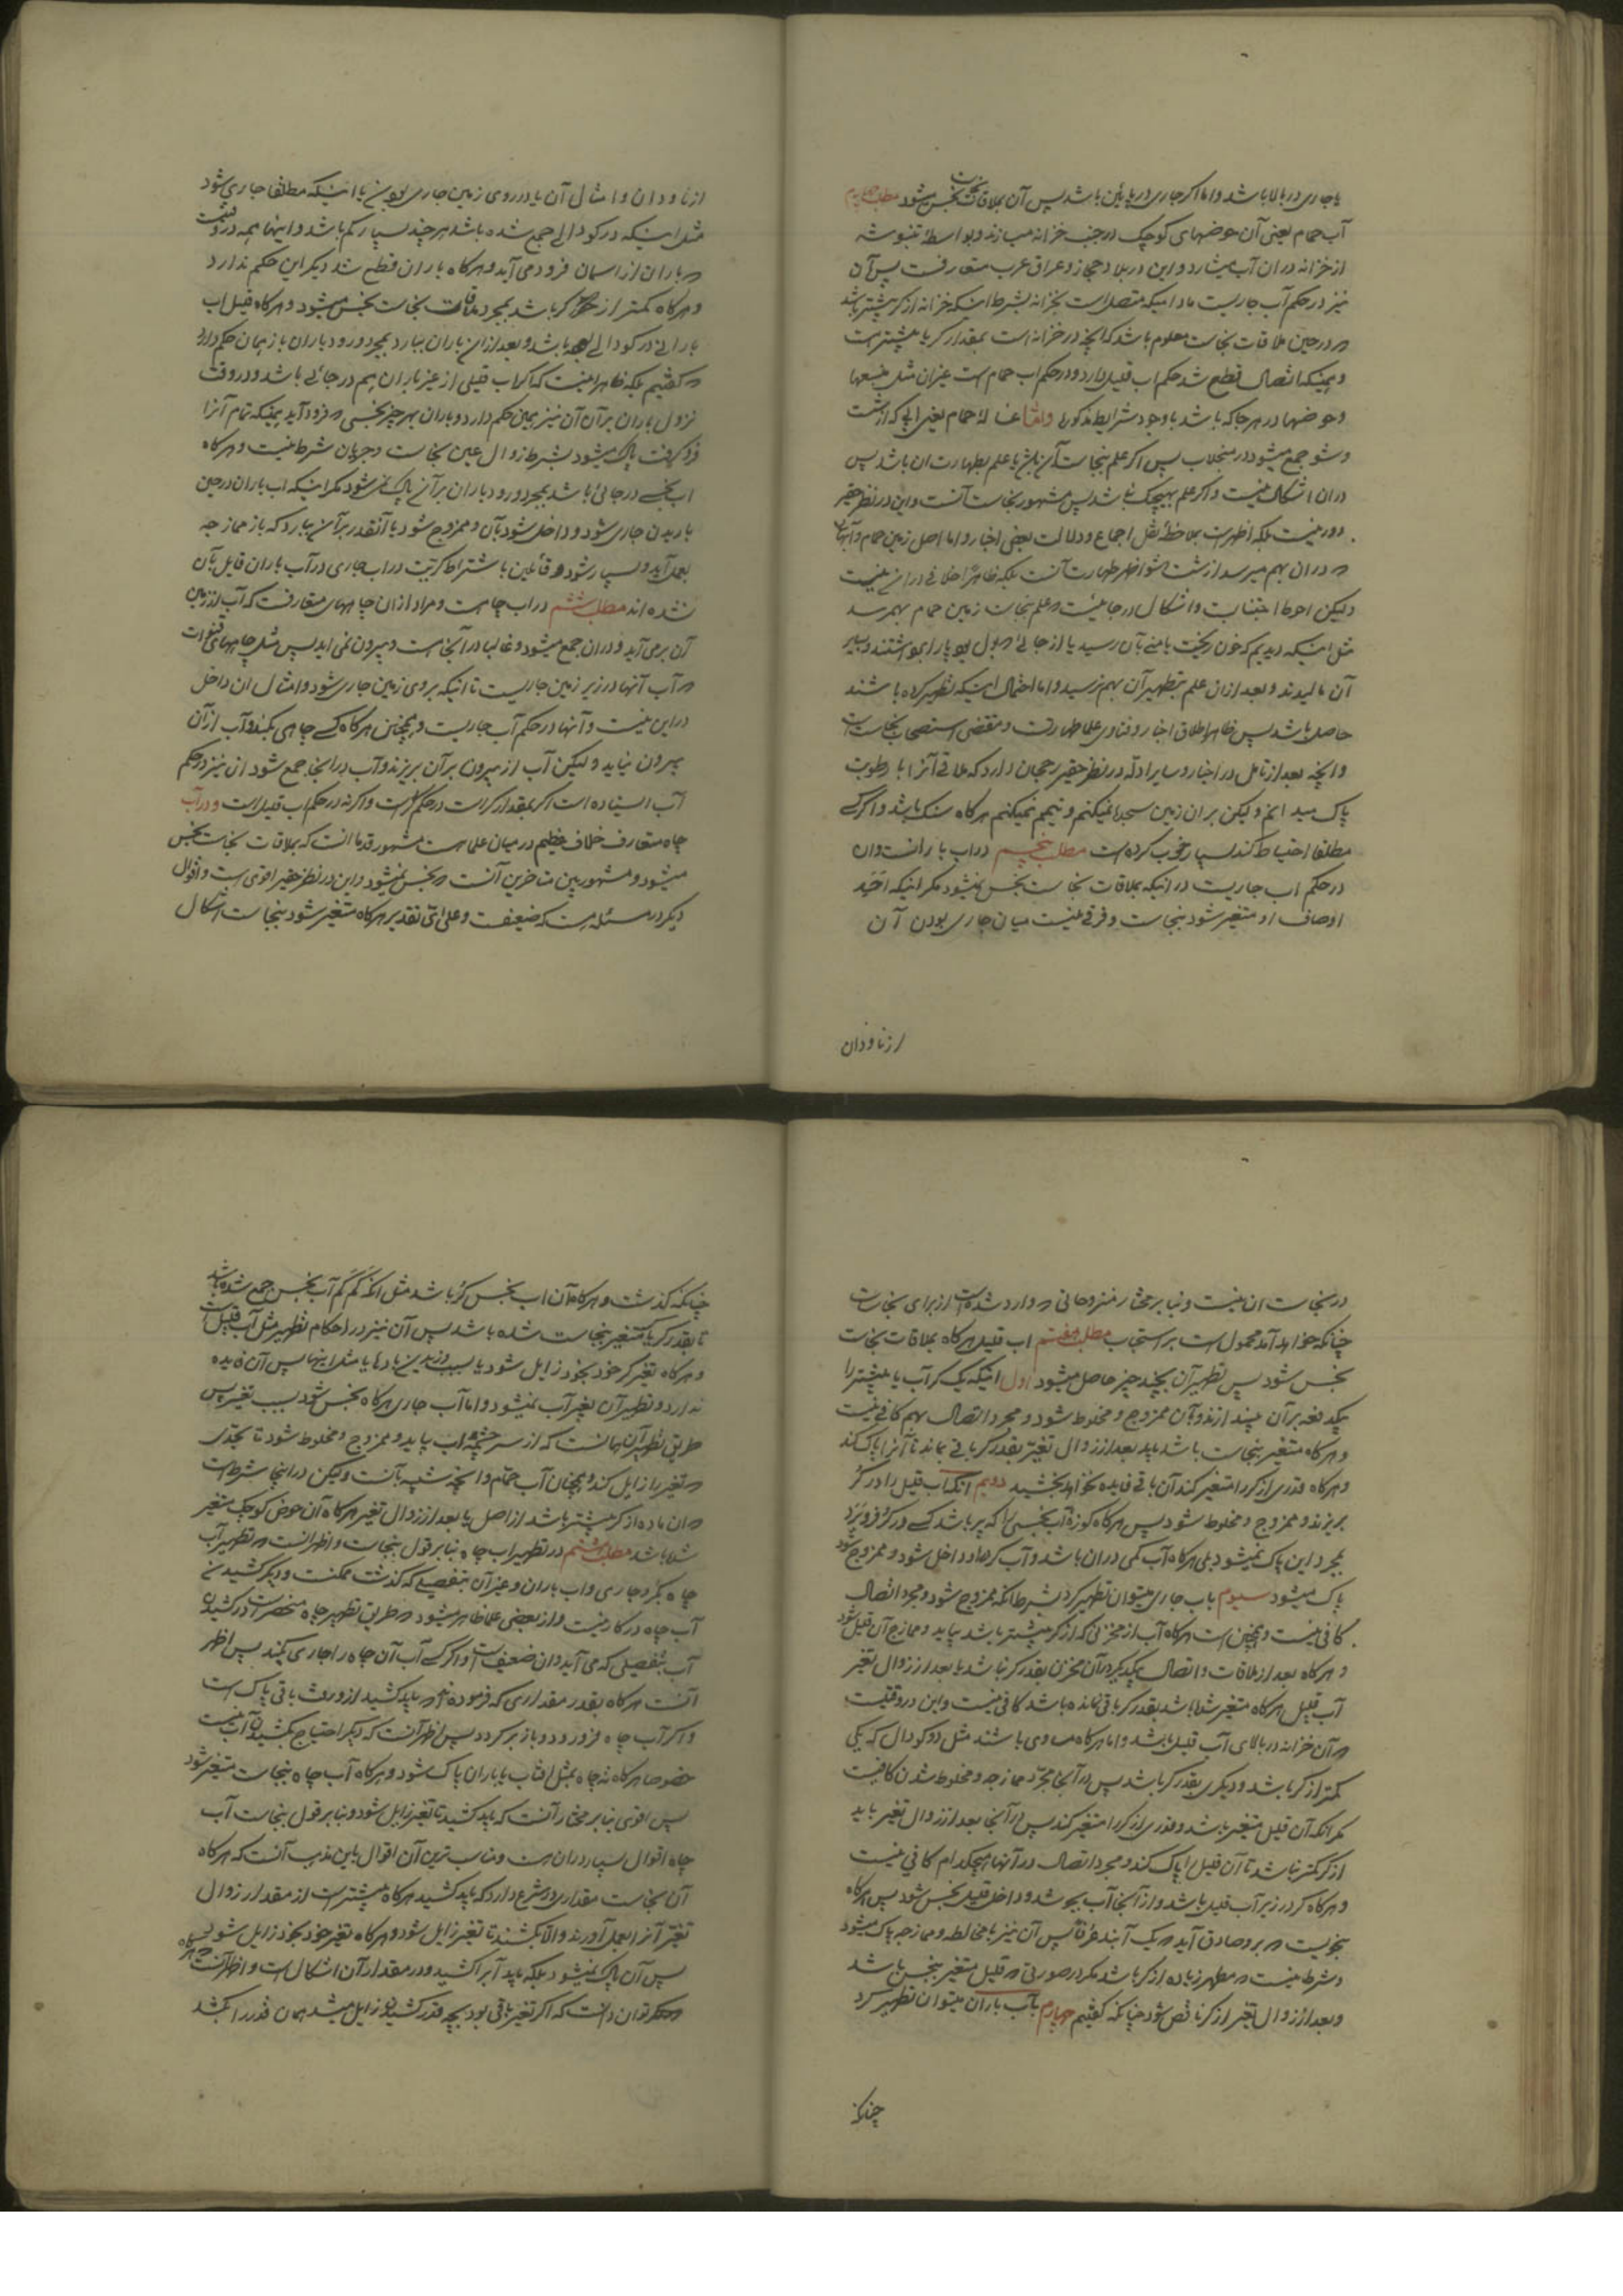 یا جاری در بالا باشد و اما اگر جاری در پایین باشد پس آن بملاقات نجاست نجس میشود مطلب چهارم
آب حمام یعنی آن حوضهای کوچک در جنب خزانه میسازند و بواسطهٔ تنبوشه
از خزانه دران آب میشارد و این در بلاد حجاز و عراق عرب متعارفست پس آن
نیز در حکم آب جاریست مادامیکه متصل است بخزانه بشرط اینکه خزانه از کر بیشتر باشد
و در حین ملاقات نجاست معلوم باشد که آنچه در خزانه است بمقدار کر یا بیشتر است
و همینکه اتصال قطع شد حکم اب قلیل دارد و در حکم اب حمام است غیر ان مثل منبعها
و حوضها در هر جا که باشد با وجود شرایط مذکوره و اما غساله حمام یعنی ابی که از شست
و شو جمع میشود در منجلاب پس اگر علم بنجاست آن باشد یا علم بطهارت ان باشد پس
دران اشکال نیست و اگر علم بهیچیک نباشد پس مشهور نجاست آنست و این در نظر حقیر
دور نیست بلکه اظهر است بملاحظهٔ نقل اجماع و دلالت بعضی اخبار و اما اصل زمین حمام و آبهای
که دران بهم میرسد از شست و شو اظهر طهارت آنست بلکه ظاهرا خلافی دران نیست
و لیکن احوط اجتناب و اشکال در جائیست که علم بنجاست زمین حمام بهمرسد
مثل اینکه دیدیم که خون ریخت یا منی بآن رسید یا از جائی که بول بود پا را نشستند و بر
آن مالیدند و بعد ازان علم بتطهیر آن بهم نرسید و اما احتمال اینکه تطهیر کرده باشند
حاصل باشد پس ظاهر اطلاق اخبار و فتاوی علما طهارتست و مقتضی استصحاب نجاست
و انچه بعد از تامل در اخبار و سایر ادله در نظر حقیر رجحان دارد که ملاقی آنرا با رطوبت
پاک میدانم و لیکن بر ان زمین سجده نمیکنم و تیمم نمیکنم هر گاه سنگ باشد و اگر کسی
مطلقا احتیاط کند بسیار خوب کرده است مطلب پنجم در اب بارانست و ان
در حکم اب جاریست در اینکه بملاقات نجاست نجس نمیشود مگر اینکه احد
اوصاف او متغیر شود بنجاست و فرقی نیست میان جاری بودن آن
از ناودان
از ناودان و امثال آن یا در روی زمین جاری بودن یا اینکه مطلقا جاری نشود
مثل اینکه در کودالی جمع شده باشد هر چند بسیار کم باشد و اینها همه در وقتیست
که باران از اسمان فرود می آید و هر گاه باران قطع شد دیگر این حکم ندارد
و هر گاه کمتر از کر باشد بمجرد ملاقات نجاست نجس میشود و هر گاه قبل اب
بارانی در کودالی بوده باشد و بعد ازان باران ببارد بمجرد ورود باران باز همان حکم دارد
که گفتیم بلکه ظاهر اینست که اگر اب قلیلی از غیر باران هم در جائی باشد و در وقت
نزول باران بر آن آن نیز همین حکم دارد و باران بهر چیز نجسی که فرود آید همینکه تمام آنرا
فرو گرفت پاک میشود بشرط زوال عین نجاست و جریان شرط نیست و هر گاه
اب نجسی در جائی باشد بمجرد ورود باران بر آن پاک نمیشود مگر اینکه اب باران در حین
باریدن جاری شود و داخل شود بآن و ممزوج شود یا آنقدر بر آن ببارد که باز ممازجه
بعمل آید و بسیار شود و قائلین باشتراط کریت در اب جاری در آب باران قایل بآن
نشده اند مطلب ششم در اب چاه است و مراد ازان چاههای متعارفست که آب از زمین
آن بر می آید و دران جمع میشود و غالبا در آنجا است و بیرون نمی اید پس مثل چاههای قنوات
که آب آنها در زیر زمین جاریست تا اینکه بروی زمین جاری شود و امثال ان داخل
در این نیست و آنها در حکم آب جاریست و همچنین هر گاه کسی چاهی بکند و آب از آن
بیرون نیاید و لیکن آب از بیرون بر آن بریزند و آب در انجا جمع شود ان نیز در حکم
آب ایستاده است اگر بمقدار کر است در حکم کر است و اگر نه در حکم اب قلیل است و در آب
چاه متعارف خلاف عظیم در میان علما است مشهور قدما انست که بملاقات نجاست نجس
میشود و مشهور بین متاخرین آنست که نجس نمیشود و این در نظر حقیر اقوی است و اقوال
دیگر در مسئله هست که ضعیفست و علی ای تقدیر هر گاه متغیر شود بنجاست اشکال
در نجاست ان نیست و بنا بر مختار منزوحاتی که وارد شده است از برای نجاست
چنانکه خواهد آمد محمول است بر استحباب مطلب هفتم اب قلیل هر گاه بملاقات نجاست
نجس شود پس تطهیر آن بچند چیز حاصل میشود اول اینکه یک کر آب یا بیشتر را
یکدفعه بر آن بیندازند و بآن ممزوج و مخلوط شود و مجرد اتصال بهم کافی نیست
و هر گاه متغیر بنجاست باشد باید بعد از زوال تغیر بقدر کر باقی بماند تا آنرا پاک کند
و هر گاه قدری از کر را متغیر کند آن باقی فایده نخواهد بخشید دویم انکه اب قلیل را در کر
بریزند و ممزوج و مخلوط شود پس هر گاه کوزهٔ آب نجسی را که پر باشد کسی در کر فرو برد
بمجرد این پاک نمیشود بلی هر گاه آب کمی دران باشد و آب کر در او داخل شود و ممزوج شود
پاک میشود سیوم باب جاری میتوان تطهیر کرد بشرط انکه ممزوج شود و مجرد اتصال
کافی نیست و همچنین است هر گاه آب از مخزنی که از کر بیشتر باشد بیاید و ممازج آن قلیل شود
و هر گاه بعد از ملاقات و اتصال بیکدیگر آن مخزن بقدر کر نباشد یا بعد از زوال تغیر
آب قلیل هر گاه متغیر شده باشد بقدر کر باقی نمانده باشد کافی نیست و این در وقتیست
که آن خزانه در بالای آب قلیل باشد و اما هر گاه مساوی باشند مثل دو کودال که یکی
کمتر از کر باشد و دیگری بقدر کر باشد پس در آنجا مجرد ممازجه و مخلوط شدن کافیست
مگر انکه آن قلیل متغیر باشد و قدری از کر را متغیر کند پس در آنجا بعد از زوال تغیر باید
از کر کمتر نباشد تا آن قلیل را پاک کند و مجرد اتصال در آنها هیچکدام کافی نیست
و هر گاه کر در زیر آب قلیل باشد و از آنجا آب بجوشد و داخل قلیل نجس شود پس هر گاه
بنحویست که بر و صادق آید که یک آبند عرفا پس آن نیز با مخالطه و ممازجه پاک میشود
و شرط نیست که مطهر زیاده از کر باشد مگر در صورتی که قلیل متغیر بنجس باشد
و بعد از زوال تغیر از کر ناقص شود چنانکه گفتیم چهارم بآب باران میتوان تطهیر کرد
چنانکه
چنانکه گذشت و هر گاه آن اب نجس کر باشد مثل انکه کم کم آب نجس جمع شده باشد
تا بقدر کر یا متغیر بنجاست شده باشد پس آن نیز در احکام تطهیر مثل آب قلیل است
و هر گاه تغیر کر خود بخود زایل شود یا بسبب وزیدن بادها یا مثل اینها پس آن فایده
ندارد و تطهیر آن بغیر آب نمیشود و اما آب جاری هر گاه نجس شود بسبب تغیر پس
طریق تطهیر آن همانست که از سر چشمه اب بیاید و ممزوج و مخلوط شود تا بحدی
که تغیر را زایل کند و همچنان آب حمام و انچه شبیه بآنست و لیکن در اینجا شرط است
که ان ماده از کر بیشتر باشد از اصل یا بعد از زوال تغیر هر گاه آن حوض کوچک متغیر
شده باشد مطلب هشتم در تطهیر اب چاه بنا بر قول بنجاست و اظهر انست که تطهیر آب
چاه بکر و جاری و اب باران و غیر آن بتفصیلی که گذشت ممکنست و دیگر کشیدن
آب چاه در کار نیست و از بعضی علما ظاهر میشود که طریق تطهیر چاه منحصر است در کشیدن
آب بتفصیلی که می آید و ان ضعیف است و اگر کسی آب آن چاه را جاری بکند پس اظهر
آنست هر گاه بقدر مقداری که فرموده اند که باید کشید ازو رفت باقی پاک است
و اگر آب چاه فرو رود و باز بر گردد پس اظهر آنست که دیگر احتیاج بکشیدن آب نیست
خصوصا هر گاه ته چاه بمثل افتاب یا باران پاک شود و هر گاه آب چاه بنجاست متغیر شود
پس اقوی بنا بر مختار آنست که باید کشید تا تغیر زایل شود و بنا بر قول بنجاست آب
چاه اقوال بسیار دران هست و مناسب ترین آن اقوال باین مذهب آنست که هر گاه
آن نجاست مقداری در شرع دارد که باید کشید هر گاه بیشتر است از مقدار زوال
تغیر آنرا بعمل آورند و الا بکشند تا تغیر زایل شود و هر گاه تغیر خود بخود زایل شود
پس آن پاک نمیشود بلکه باید آبرا کشید و در مقدار آن اشکال است و اظهر آنست که هر گاه
توان دانست که اگر تغیر باقی بود بچه قدر کشیدن زایل میشد همان قدر را بکشد